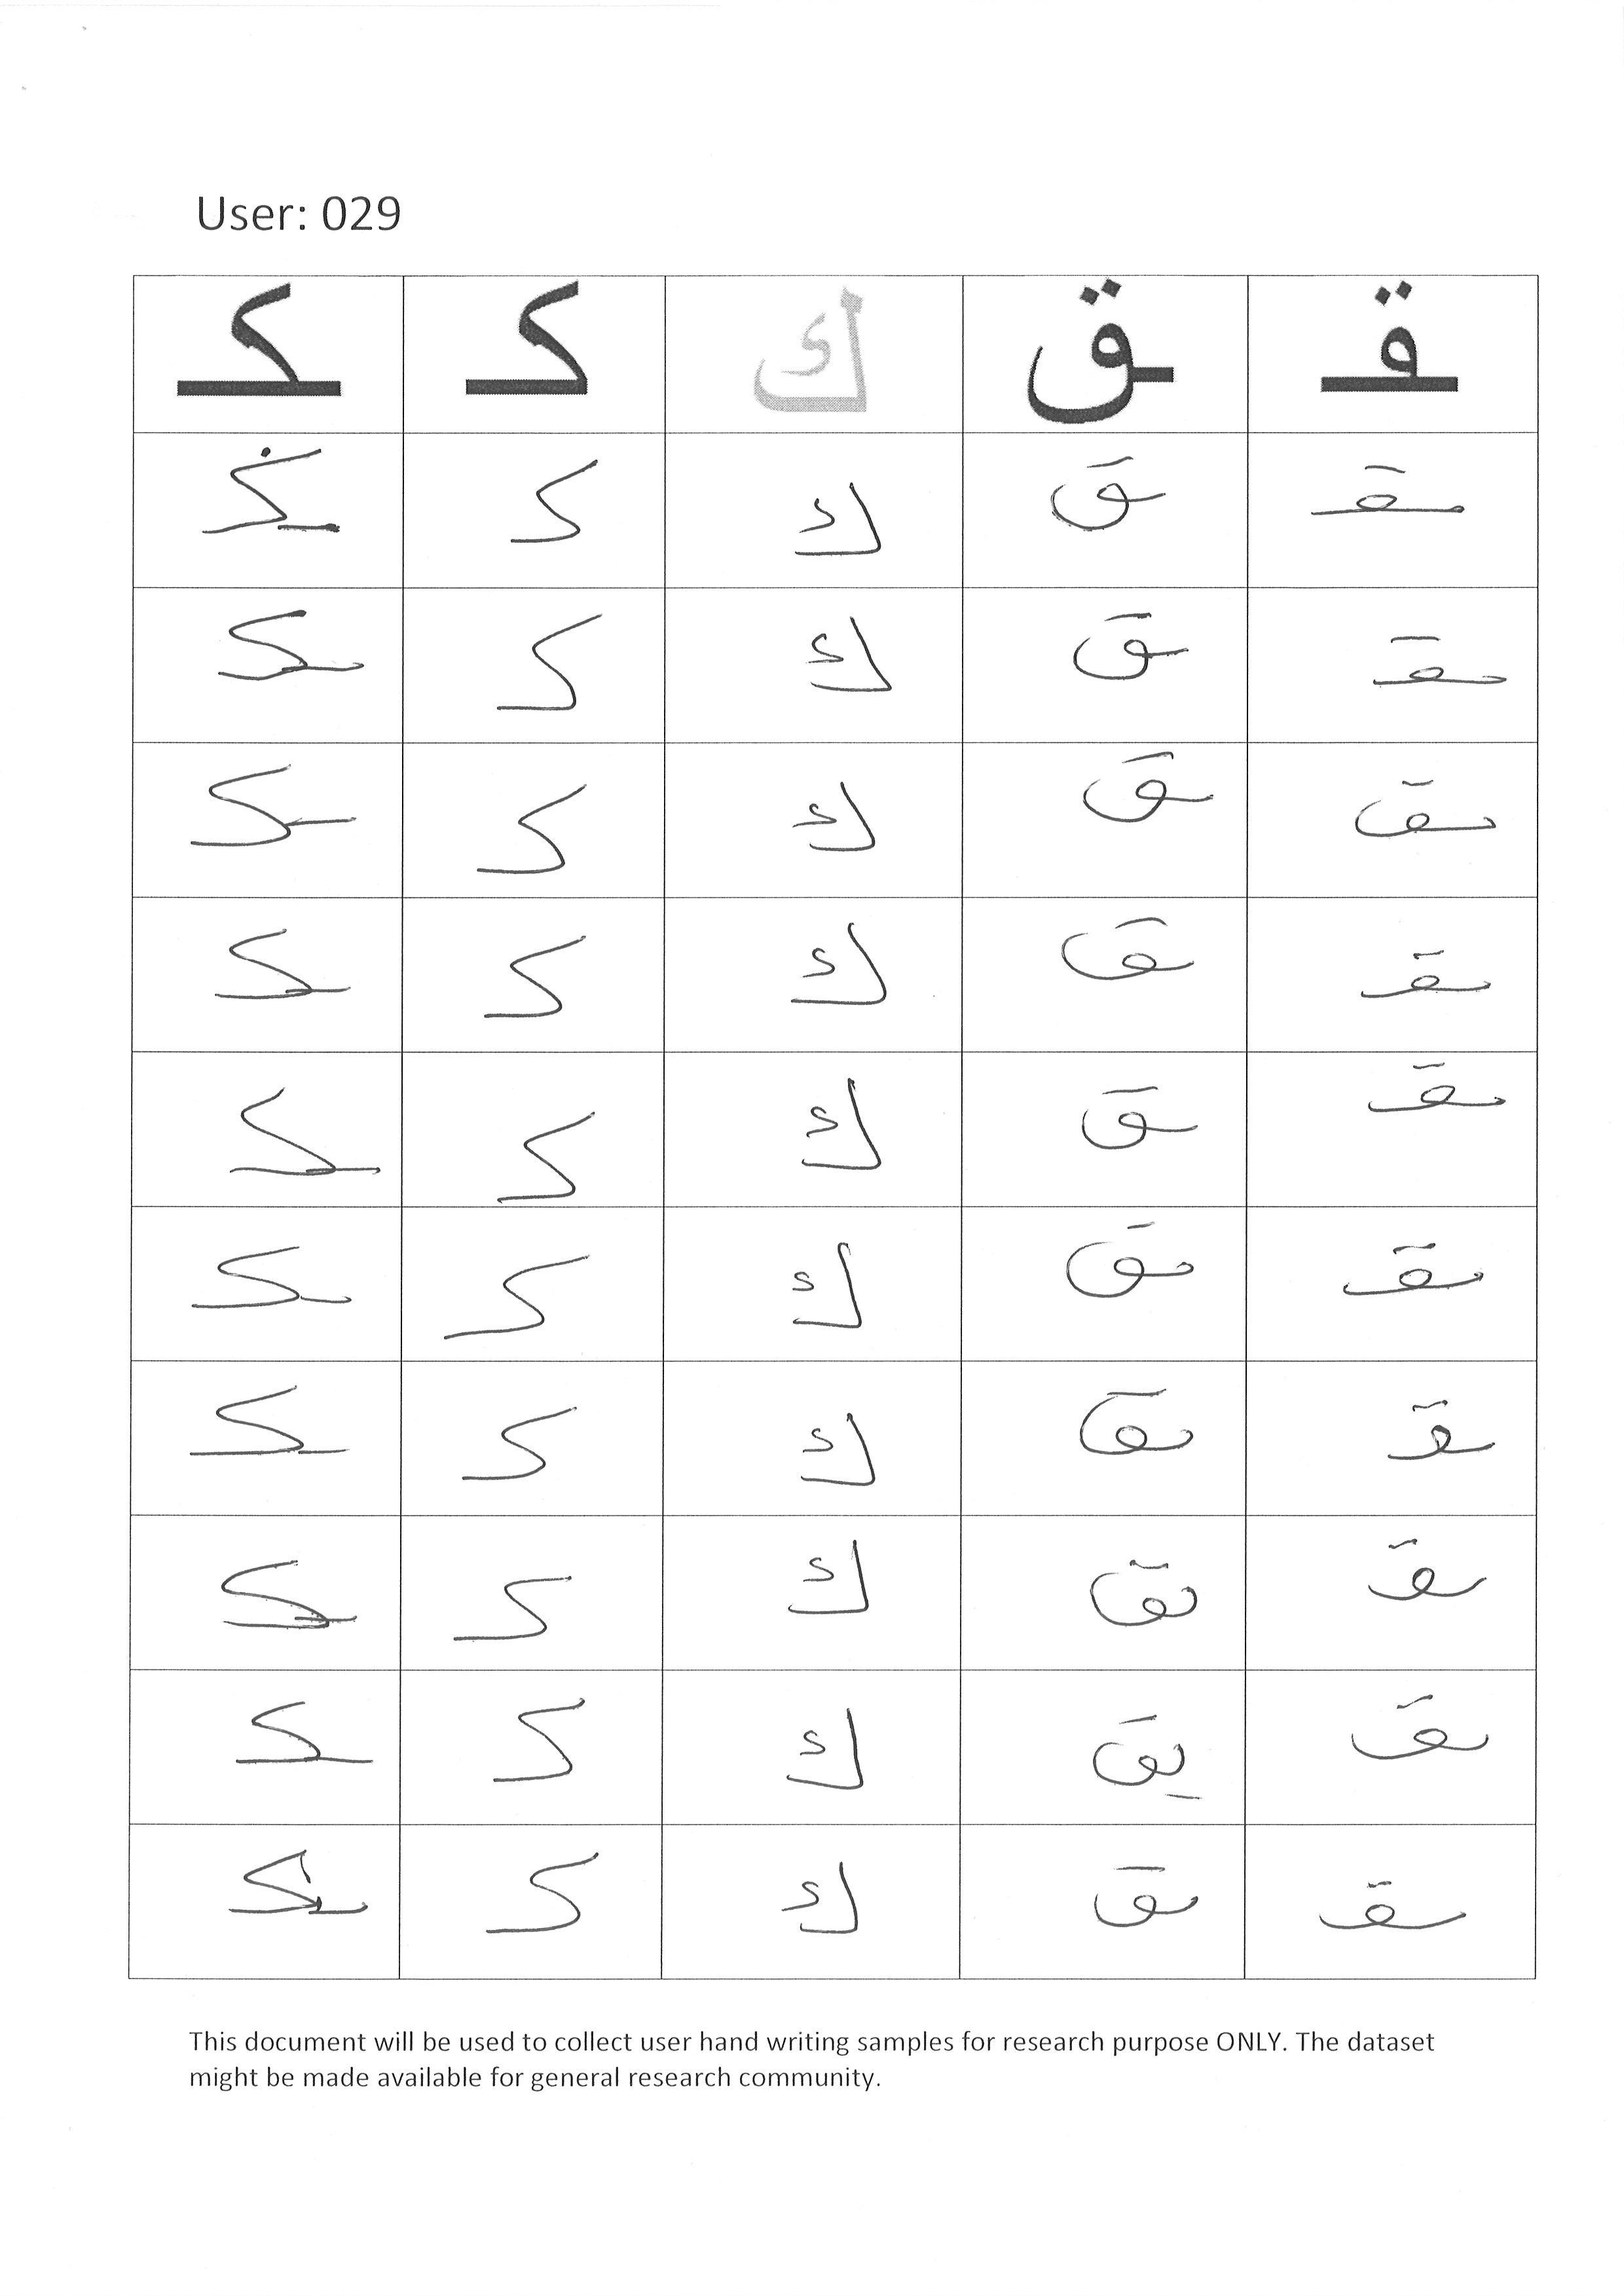 User: 029
ـكـ كـ ك ـق ـقـ
ـكـ كـ ك ـق ـقـ
ـكـ كـ ك ـق ـقـ
ـكـ كـ ك ـق ـقـ
ـكـ كـ ك ـق ـقـ
ـكـ كـ ك ـق ـقـ
ـكـ كـ ك ـق ـقـ
ـكـ كـ ك ـق ـقـ
ـكـ كـ ك ـق ـقـ
ـكـ كـ ك ـق ـقـ
ـكـ كـ ك ـق ـقـ
This document will be used to collect user hand writing samples for research purpose ONLY. The dataset
might be made available for general research community.